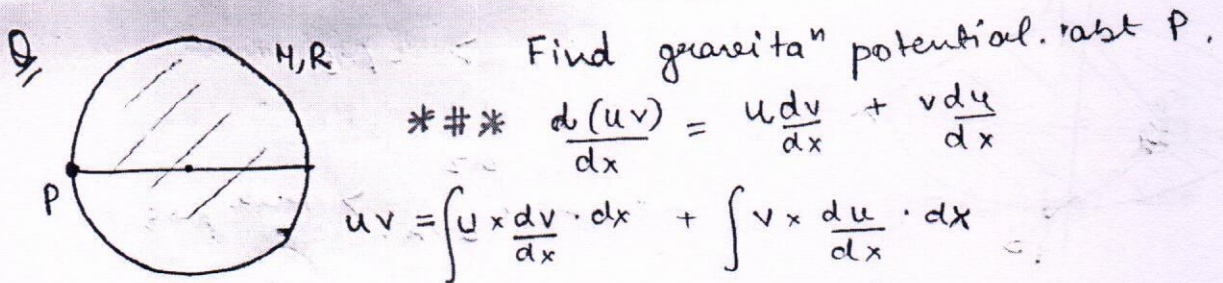 Q//
M,R Find gravitaⁿ potential. abt P.
*#* d(uv)/dx = u dv/dx + v du/dx
P
uv = ∫ u × dv/dx · dx + ∫ v × du/dx · dx